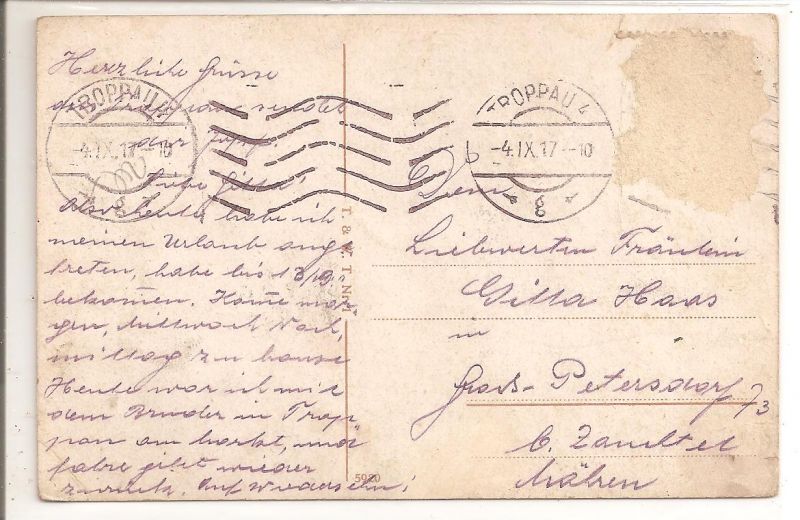 Herzliche Grüsse
TROPPAU 4
-4.IX.17.-10
g
Liebe Gitta!
Also heute habe ich
meinen Urlaub ange
treten, habe bis 18/9.
bekom̄en. Kom̄e mor
gen, Mittwoch Nach
mittag zu hause
Heute war ich mit
dem Bruder in Trop
pau am Markt, und
fahre jetzt wieder
zurück. Auf Wiedersehn!
T. & W. T. Nr. 1
5920
TROPPAU 4
-4.IX.17.-10
g
Dem
Liebwerten Fräulein
Gitta Haas
in
Gross-Petersdorf 73
b. Zauchtel
Mähren